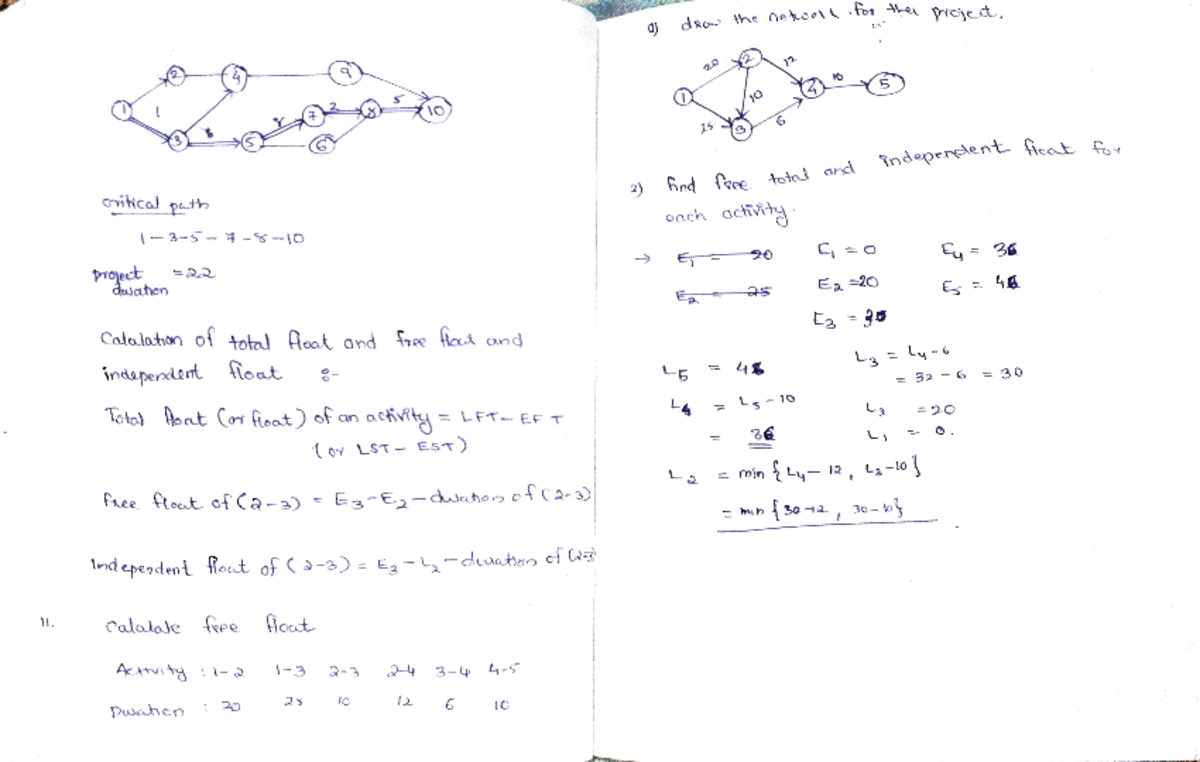 1
2
4
9
1
3
8
5
8
7
2
8
5
10
6
critical path
1-3-5-7-8-10
project = 22
duration
Calalation of total float and free float and
independent float :-
Total float (or float) of an activity = LFT - EFT
(or LST - EST)
Free float of (2-3) = E3 - E2 - duration of (2-3)
Independent float of (2-3) = E3 - L2 - duration of (2-3)
11. Calalate free float
Activity : 1-2 1-3 2-3 2-4 3-4 4-5
Duration : 20 25 10 12 6 10
a) draw the network for the project.
20
2
12
1
10
4
10
5
25
3
6
2) find free total and independent float for
each activity.
→ E1 = 20 E1 = 0 E4 = 36
E2 = 25 E2 = 20 E5 = 46
E3 = 30
L5 = 46 L3 = L4 - 6
= 32 - 6 = 30
L4 = L5 - 10 L2 = 20
= 36 L1 = 0.
L2 = min { L4 - 12, L3 - 10 }
= min { 30 - 12, 30 - 10 }